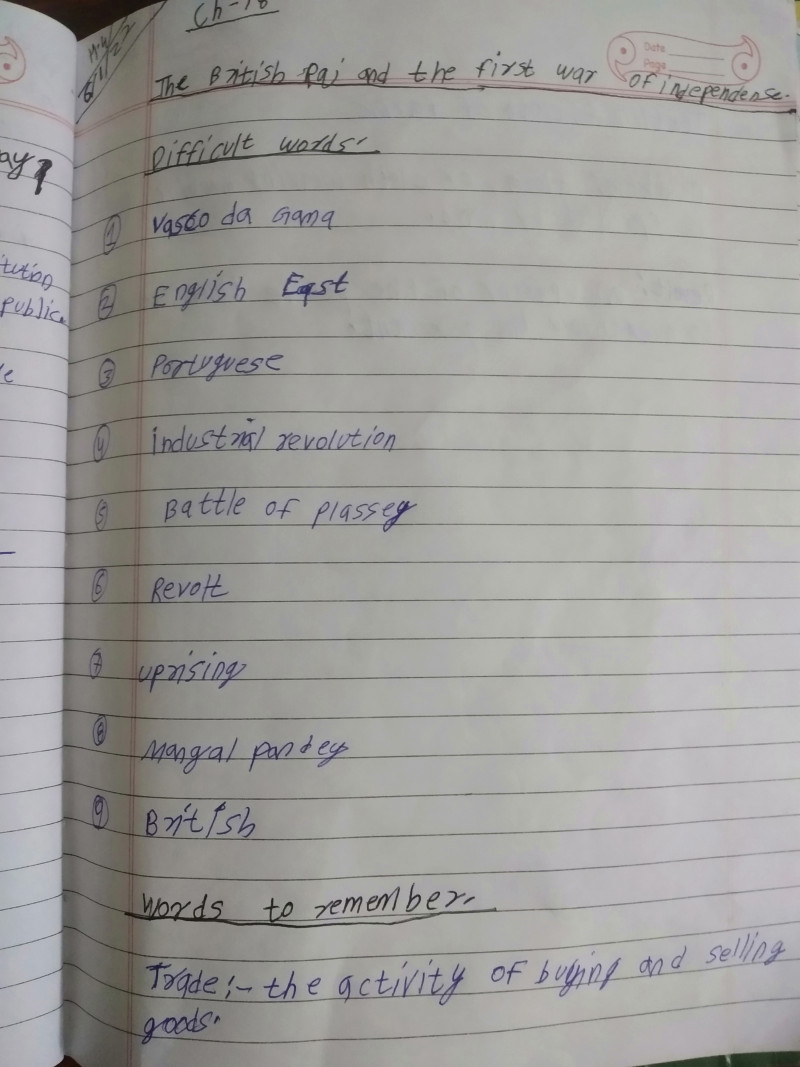 Ch-18
The British Raj and the first war of independense.
Date
Page
Difficult words:-
1 Vasco da Gama
2 English East
3 Portuguese
4 industrial revolution
5 Battle of plassey
6 Revolt
7 uprising
8 Mangal pandey
9 British
words to remember.
Trade:- the activity of buying and selling
goods.
tution
public